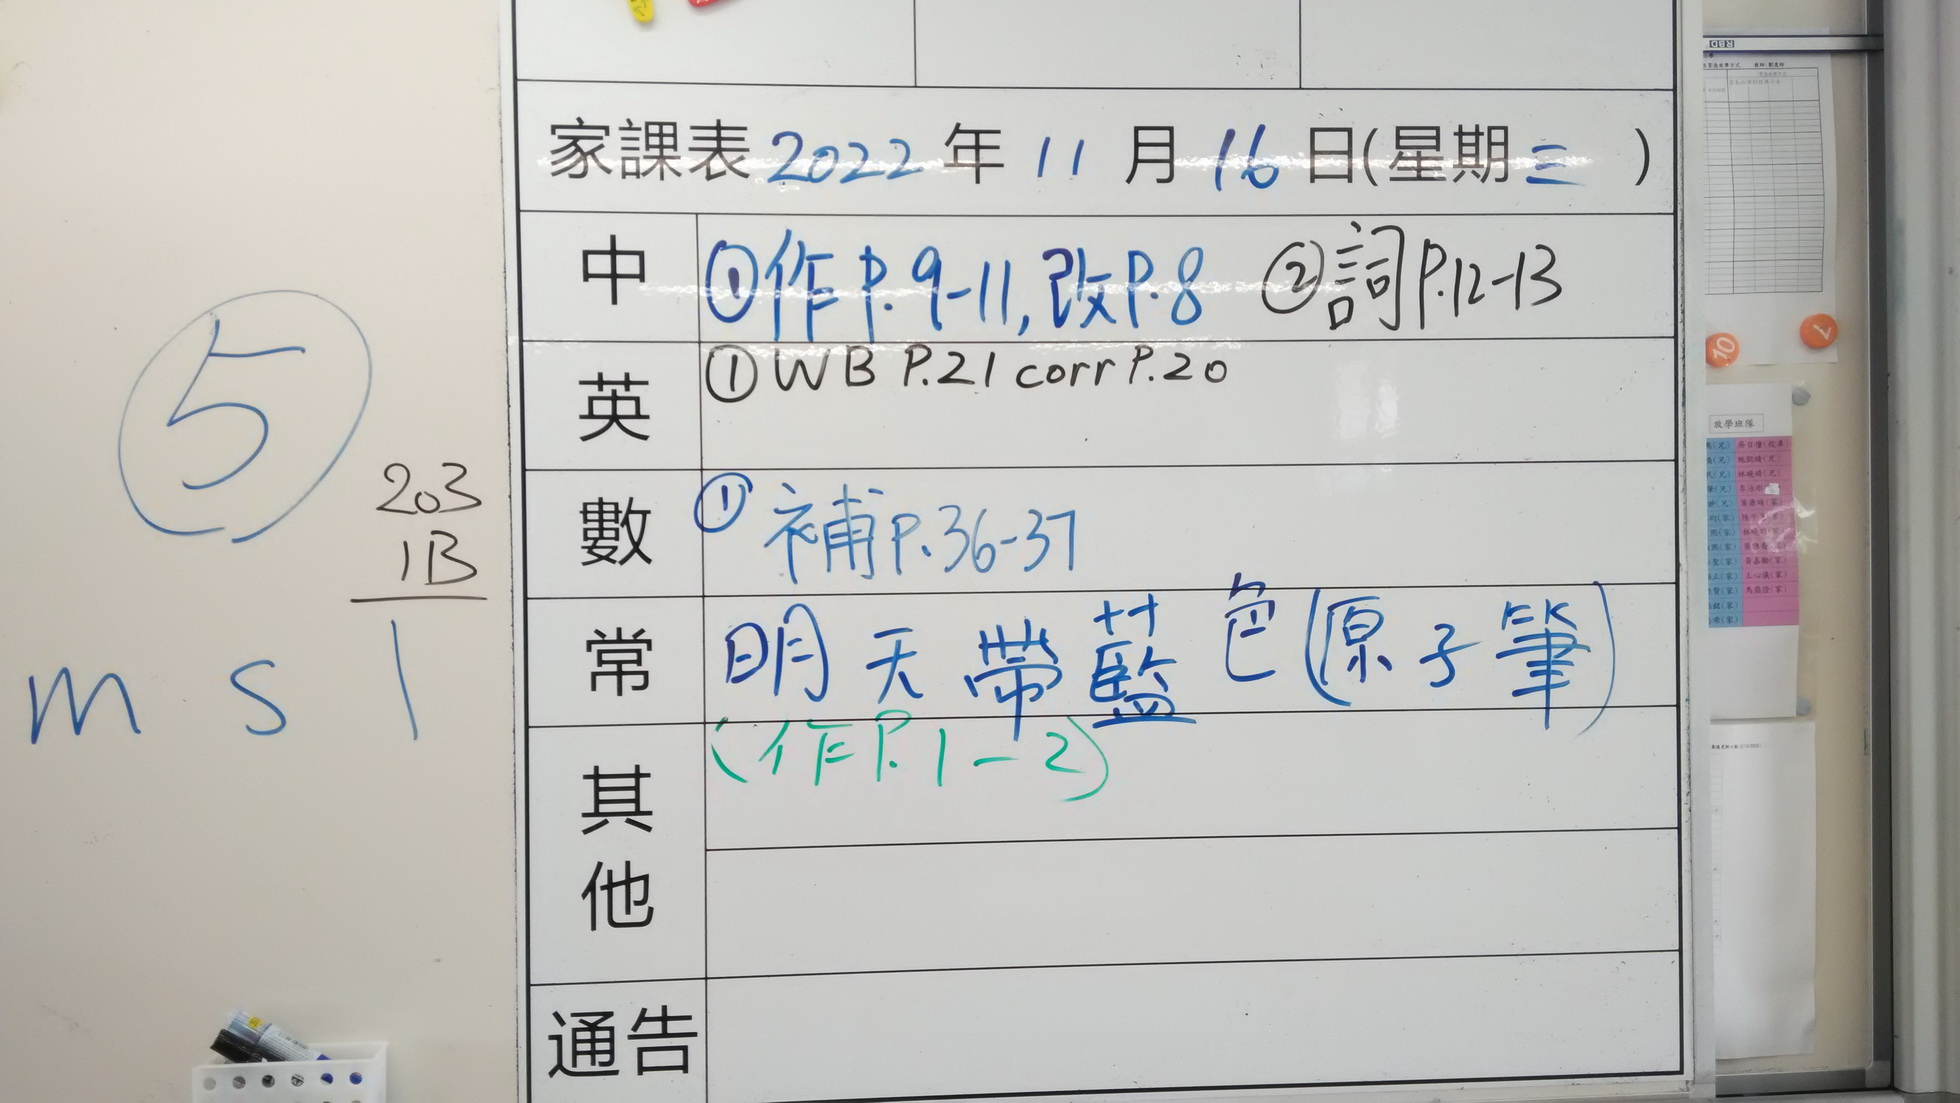 家課表 2022 年 11 月 16 日(星期三 )
中 ①作P.9-11,改P.8 ②詞P.12-13
英 ①WB P.21 corr P.20
數 ① 補P.36-37
常 明天帶藍色(原子筆)
其他 (作P.1-2)
通告
5
203
1B
m s 1
10
7
放學班隊